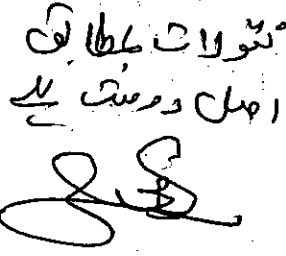 نقولات مطابق
اصل درست ہے